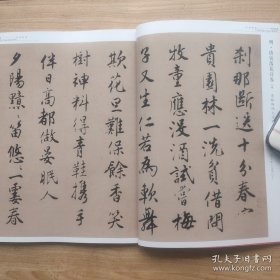 刹那斷送十分春富
貴園林一洗貧借問
牧童應沒酒試嘗梅
子又生仁若為軟舞
欺花旦難保餘香笑
樹神料得青鞋攜手
伴日高都做晏眠人
夕陽黯〻笛悠〻一霎春